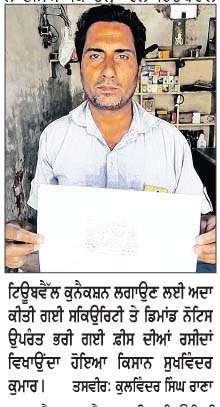 ਟਿਊਬਵੈੱਲ ਕੁਨੈਕਸ਼ਨ ਲਗਾਉਣ ਲਈ ਅਦਾ
ਕੀਤੀ ਗਈ ਸਕਿਉਰਿਟੀ ਤੇ ਡਿਮਾਂਡ ਨੋਟਿਸ
ਉਪਰੰਤ ਭਰੀ ਗਈ ਫ਼ੀਸ ਦੀਆਂ ਰਸੀਦਾਂ
ਵਿਖਾਉਂਦਾ ਹੋਇਆ ਕਿਸਾਨ ਸੁਖਵਿੰਦਰ
ਕੁਮਾਰ। ਤਸਵੀਰ: ਕੁਲਵਿੰਦਰ ਸਿੰਘ ਰਾਣਾ